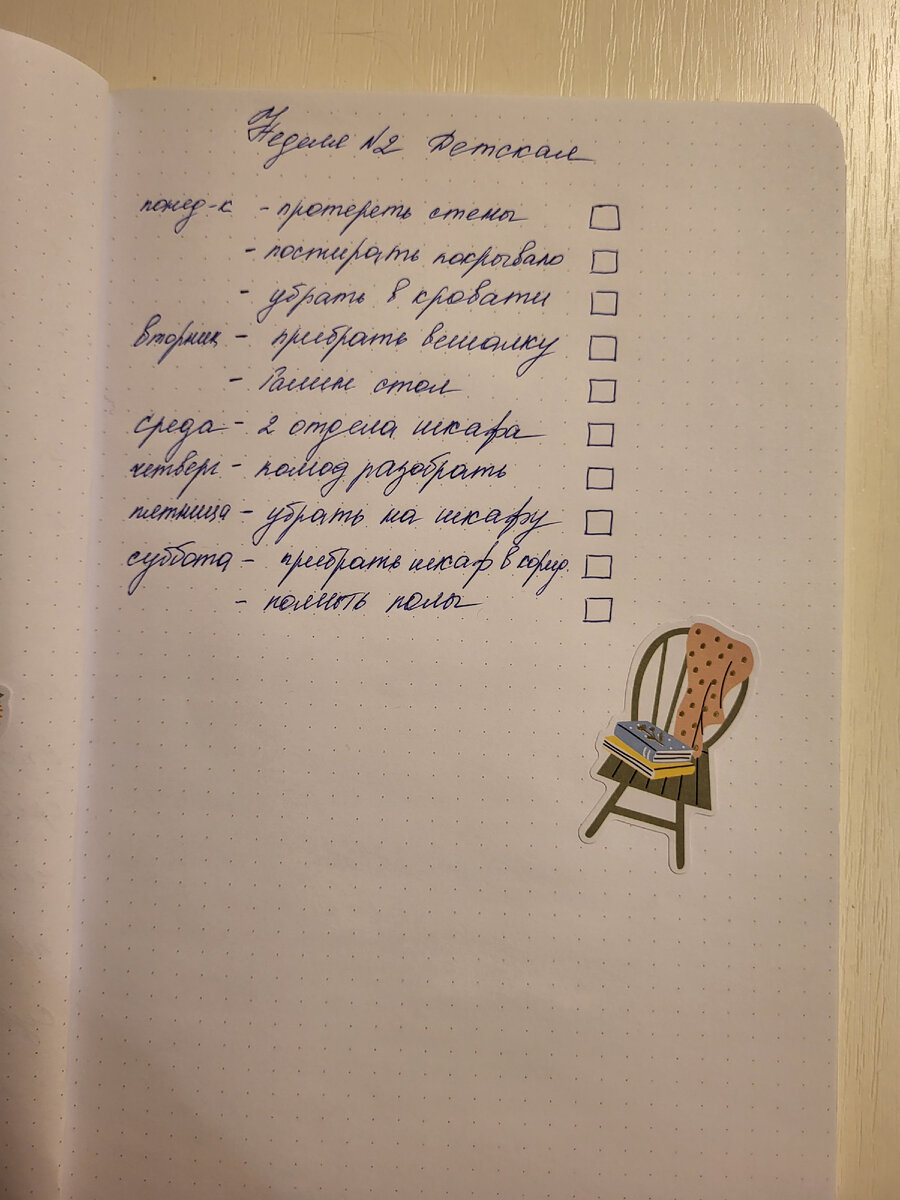 Неделя №2 Детская
понед-к - протереть стены
- постирать покрывало
- убрать в кровати
вторник - прибрать вешалку
- Галин стол
среда - 2 отдела шкафа
четверг - комод разобрать
пятница - убрать на шкафу
суббота - прибрать шкаф в корид.
- помыть полы